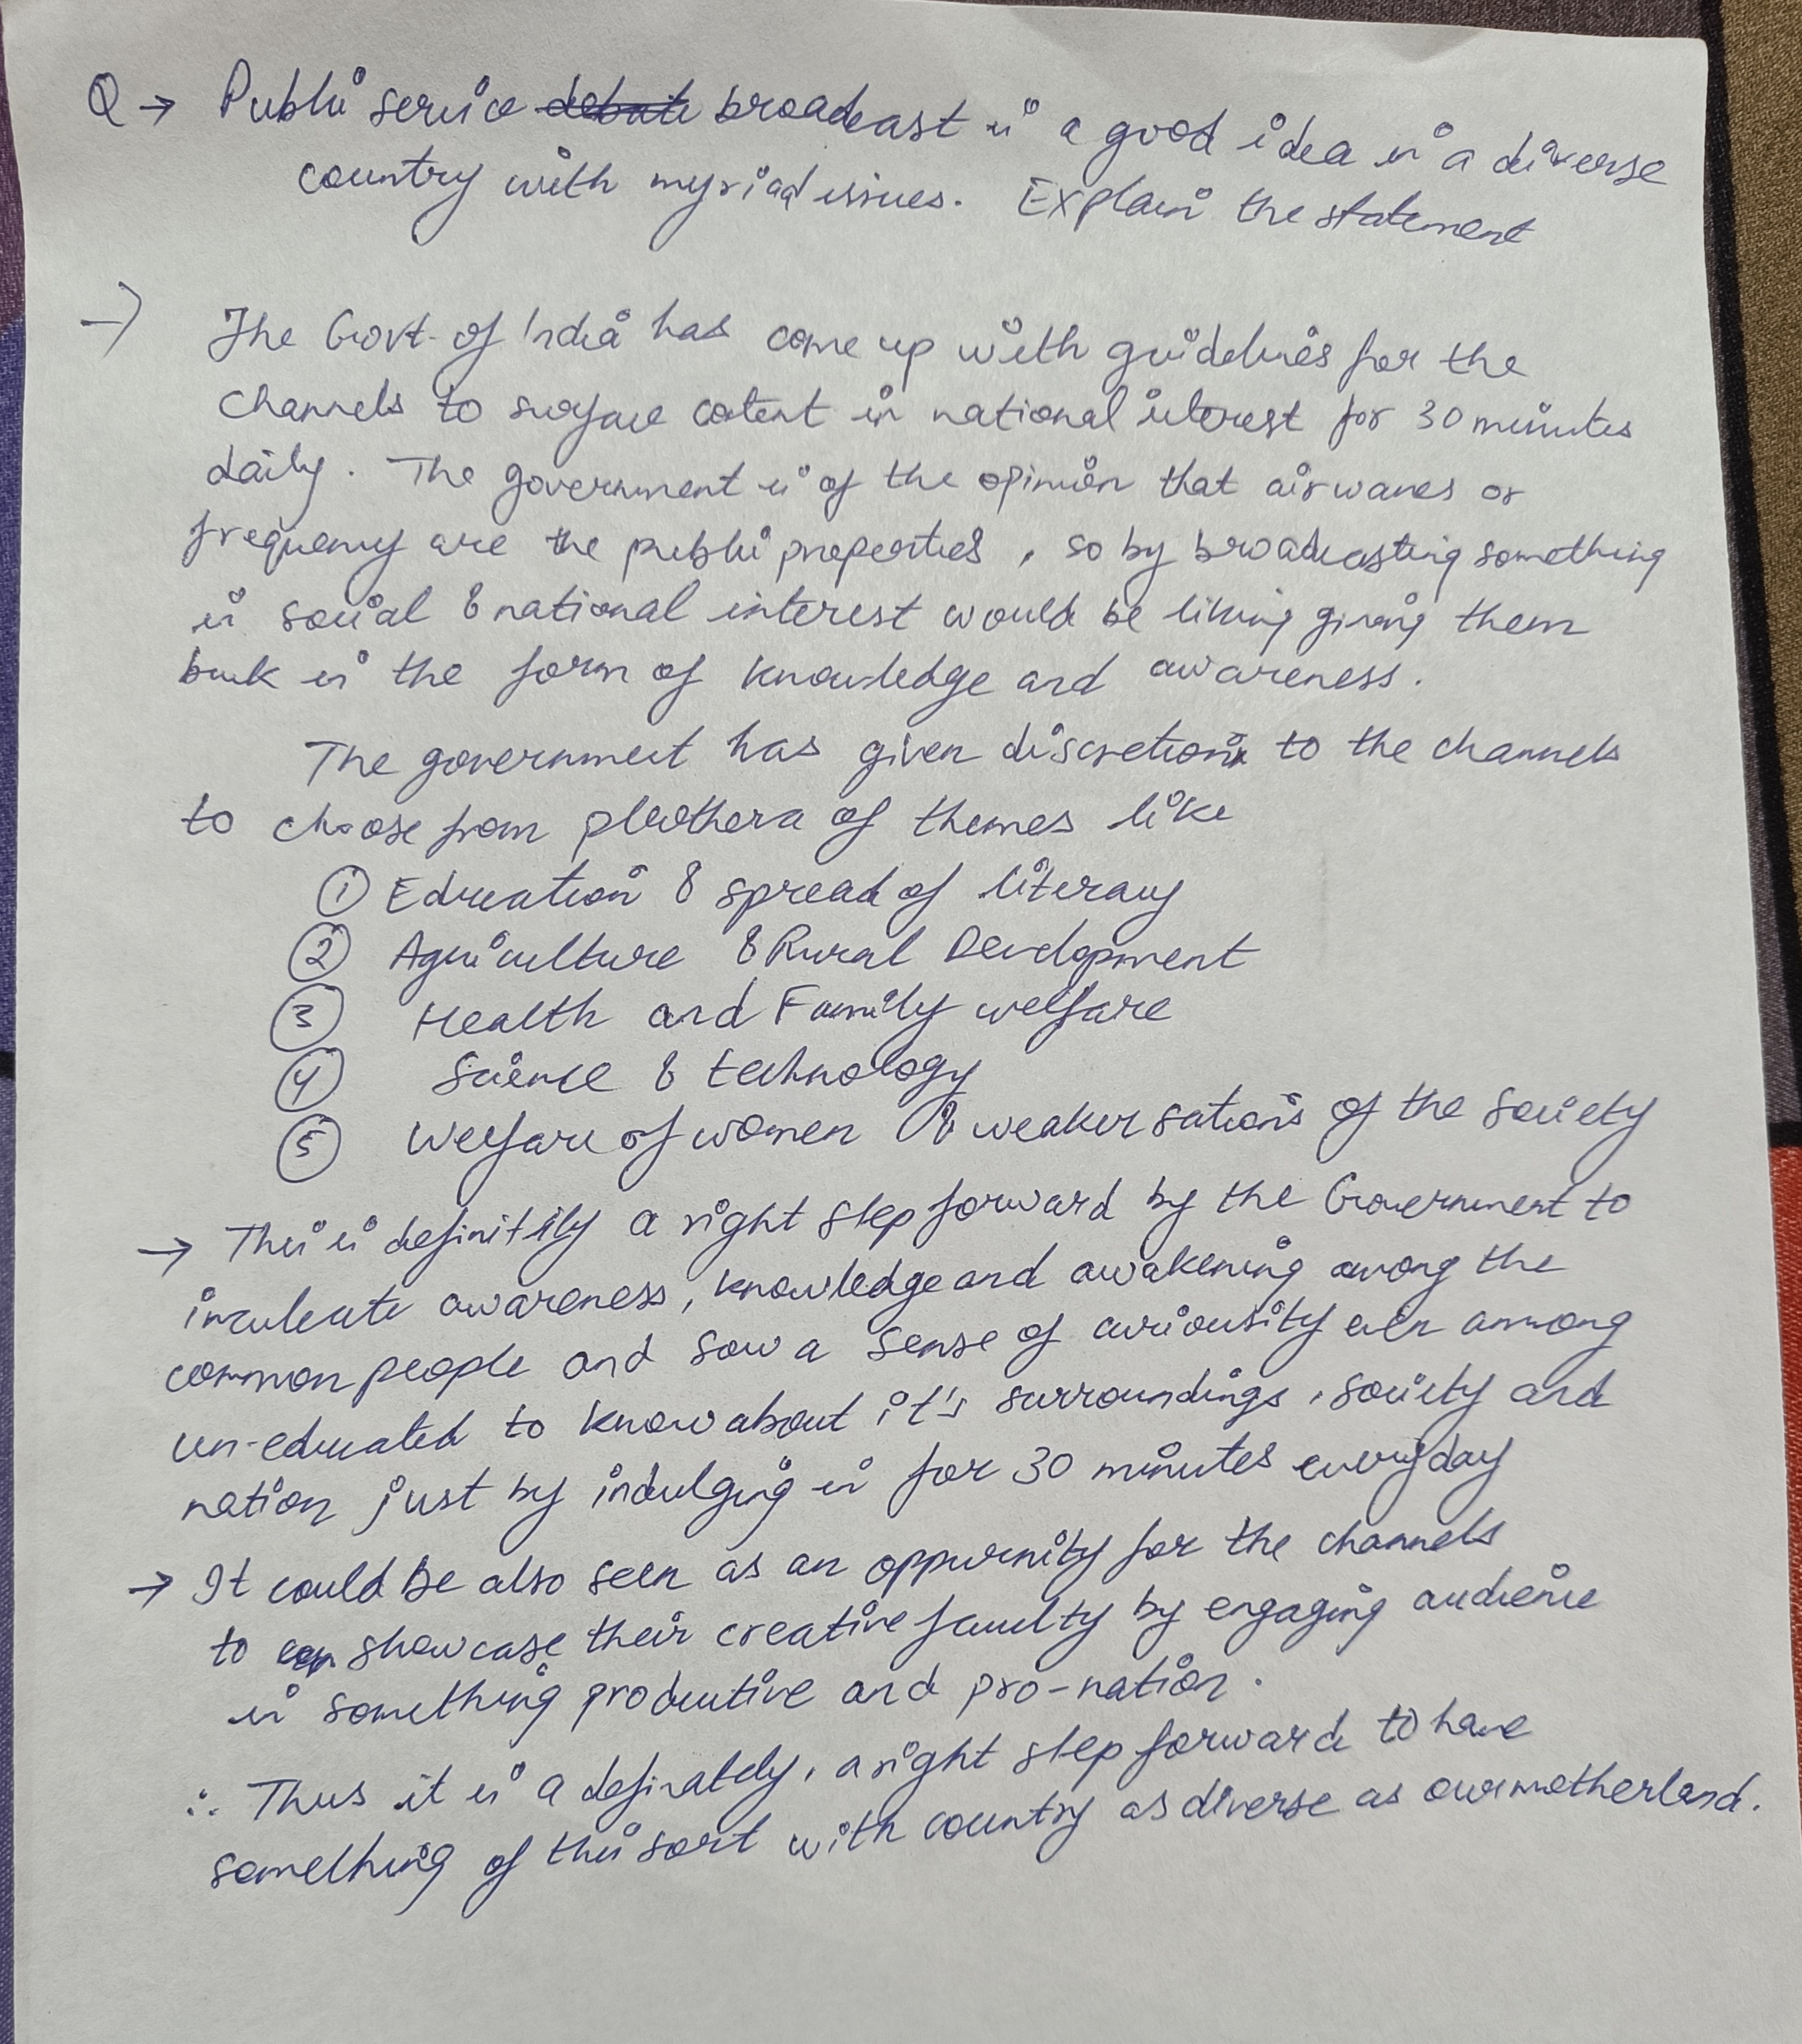 Q → Public service debate broadcast is a good idea in a diverse
country with myriad issues. Explain the statement
→ The Govt. of India has come up with guidelines for the
channels to surface cotent in national interest for 30 minutes
daily. The government is of the opinion that airwaves or
frequency are the public properties, so by broadcasting something
in social & national interest would be liking giving them
back in the form of knowledge and awareness.
The government has given discretion to the channels
to choose from pleothera of themes like
① Education & spread of literacy
② Agriculture & Rural Development
③ Health and Family welfare
④ Science & technology
⑤ Welfare of women & weaker sations of the society
→ This is definitily a right step forward by the Government to
inculcate awareness, knowledge and awakening among the
common people and sow a sense of curiousity even among
un-educated to know about it's surroundings, society and
nation just by indulging in for 30 minutes everyday
→ It could be also seen as an oppurnity for the channels
to showcase their creative faculty by engaging audience
in something productive and pro-nation.
∴ Thus it is a definately, a right step forward to have
something of this sort with country as diverse as our motherland.